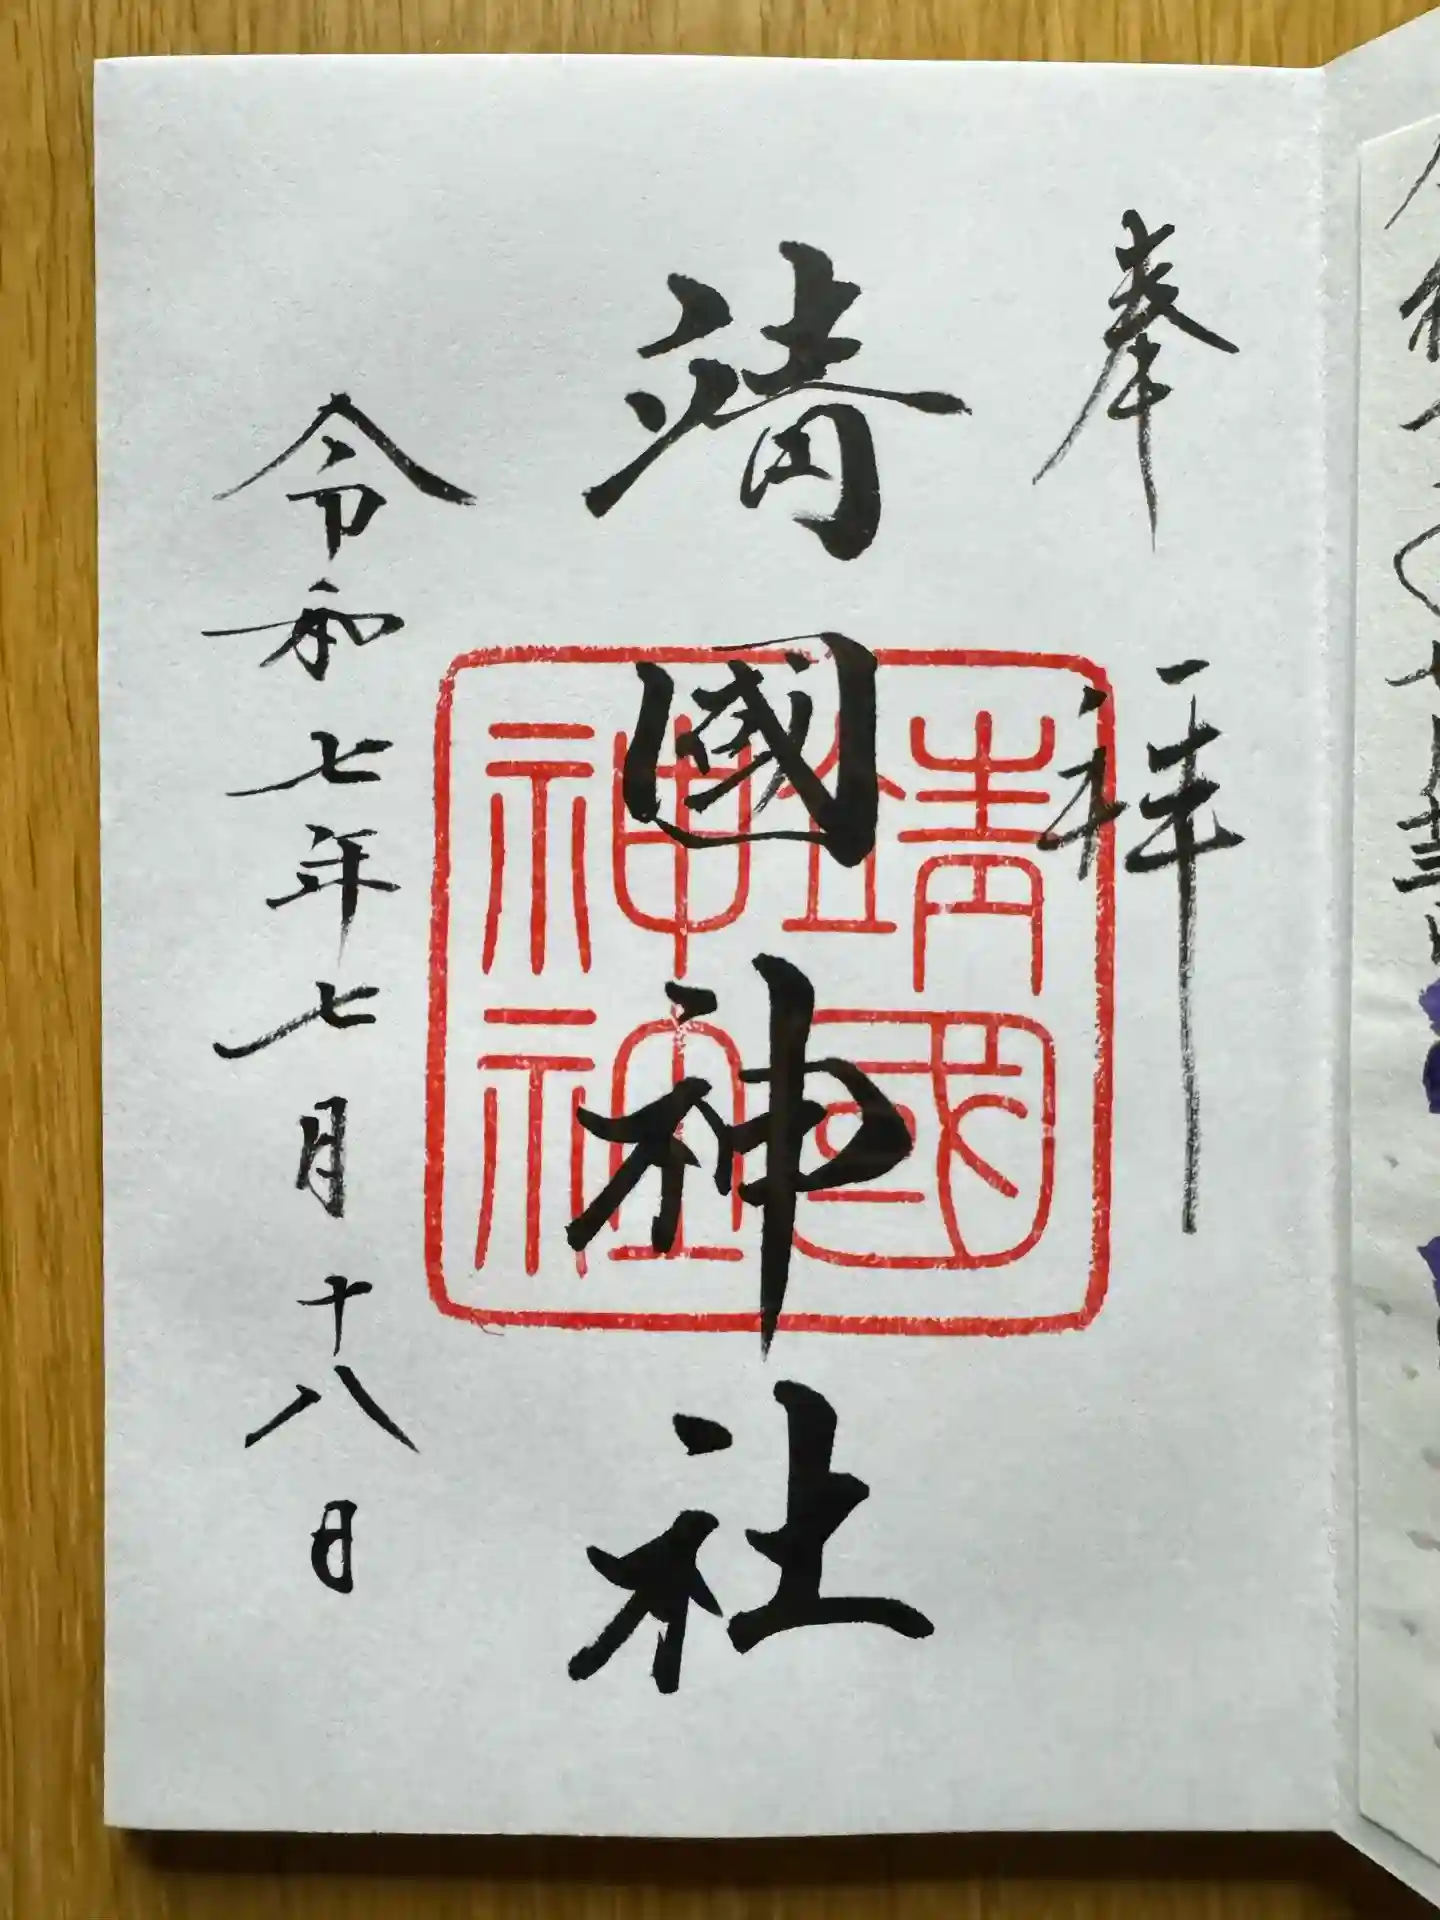 奉拝
靖國神社
靖國神社
令和七年七月十八日